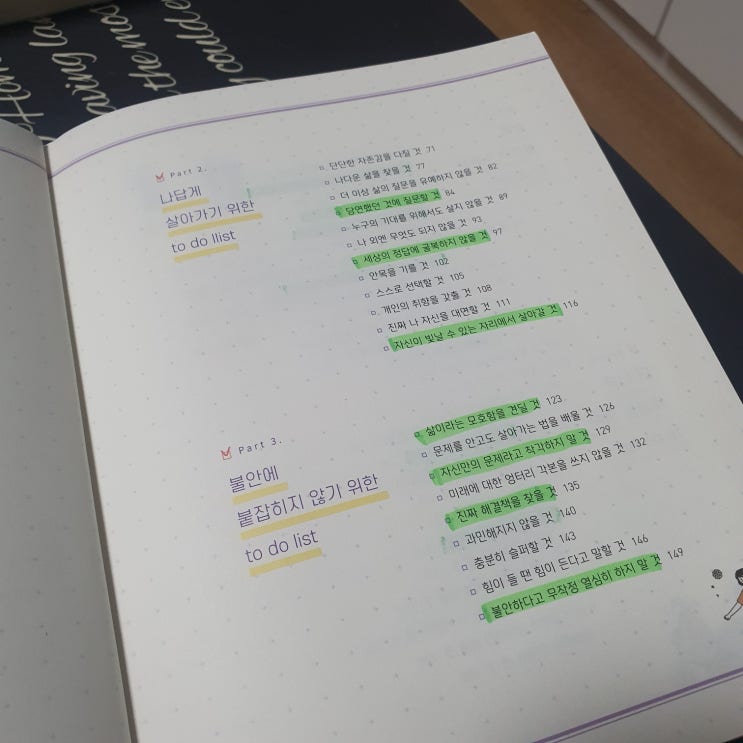 Part 2.
나답게
살아가기 위한
to do llist
단단한 자존감을 다질 것 71
나다운 삶을 찾을 것 77
더 이상 삶의 질문을 유예하지 않을 것 82
당연했던 것에 질문할 것 84
누구의 기대를 위해서도 살지 않을 것 89
나 외엔 무엇도 되지 않을 것 93
세상의 정답에 굴복하지 않을 것 97
안목을 기를 것 102
스스로 선택할 것 105
개인의 취향을 갖출 것 108
진짜 나 자신을 대면할 것 111
자신이 빛날 수 있는 자리에서 살아갈 것 116
Part 3.
불안에
붙잡히지 않기 위한
to do list
삶이라는 모호함을 견딜 것 123
문제를 안고도 살아가는 법을 배울 것 126
자신만의 문제라고 착각하지 말 것 129
미래에 대한 엉터리 각본을 쓰지 않을 것 132
진짜 해결책을 찾을 것 135
과민해지지 않을 것 140
충분히 슬퍼할 것 143
힘이 들 땐 힘이 든다고 말할 것 146
불안하다고 무작정 열심히 하지 말 것 149
could
the